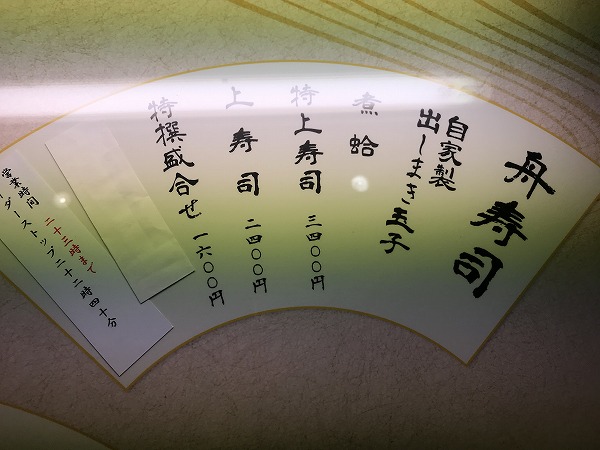 舟寿司
自家製
出しまき玉子
煮蛤
特上寿司 三四〇〇円
上寿司 二四〇〇円
特撰盛合せ 一六〇〇円
営業時間 二十三時まで
ーダーストップ二十二時四十分